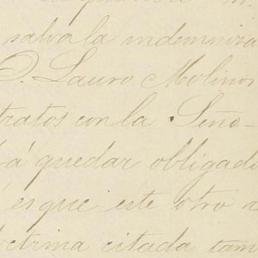 salva la indemniza
D. Lauro Molinos
tratos con la Seño-
rá quedar obligado
es que este otro
doctrina citada tam